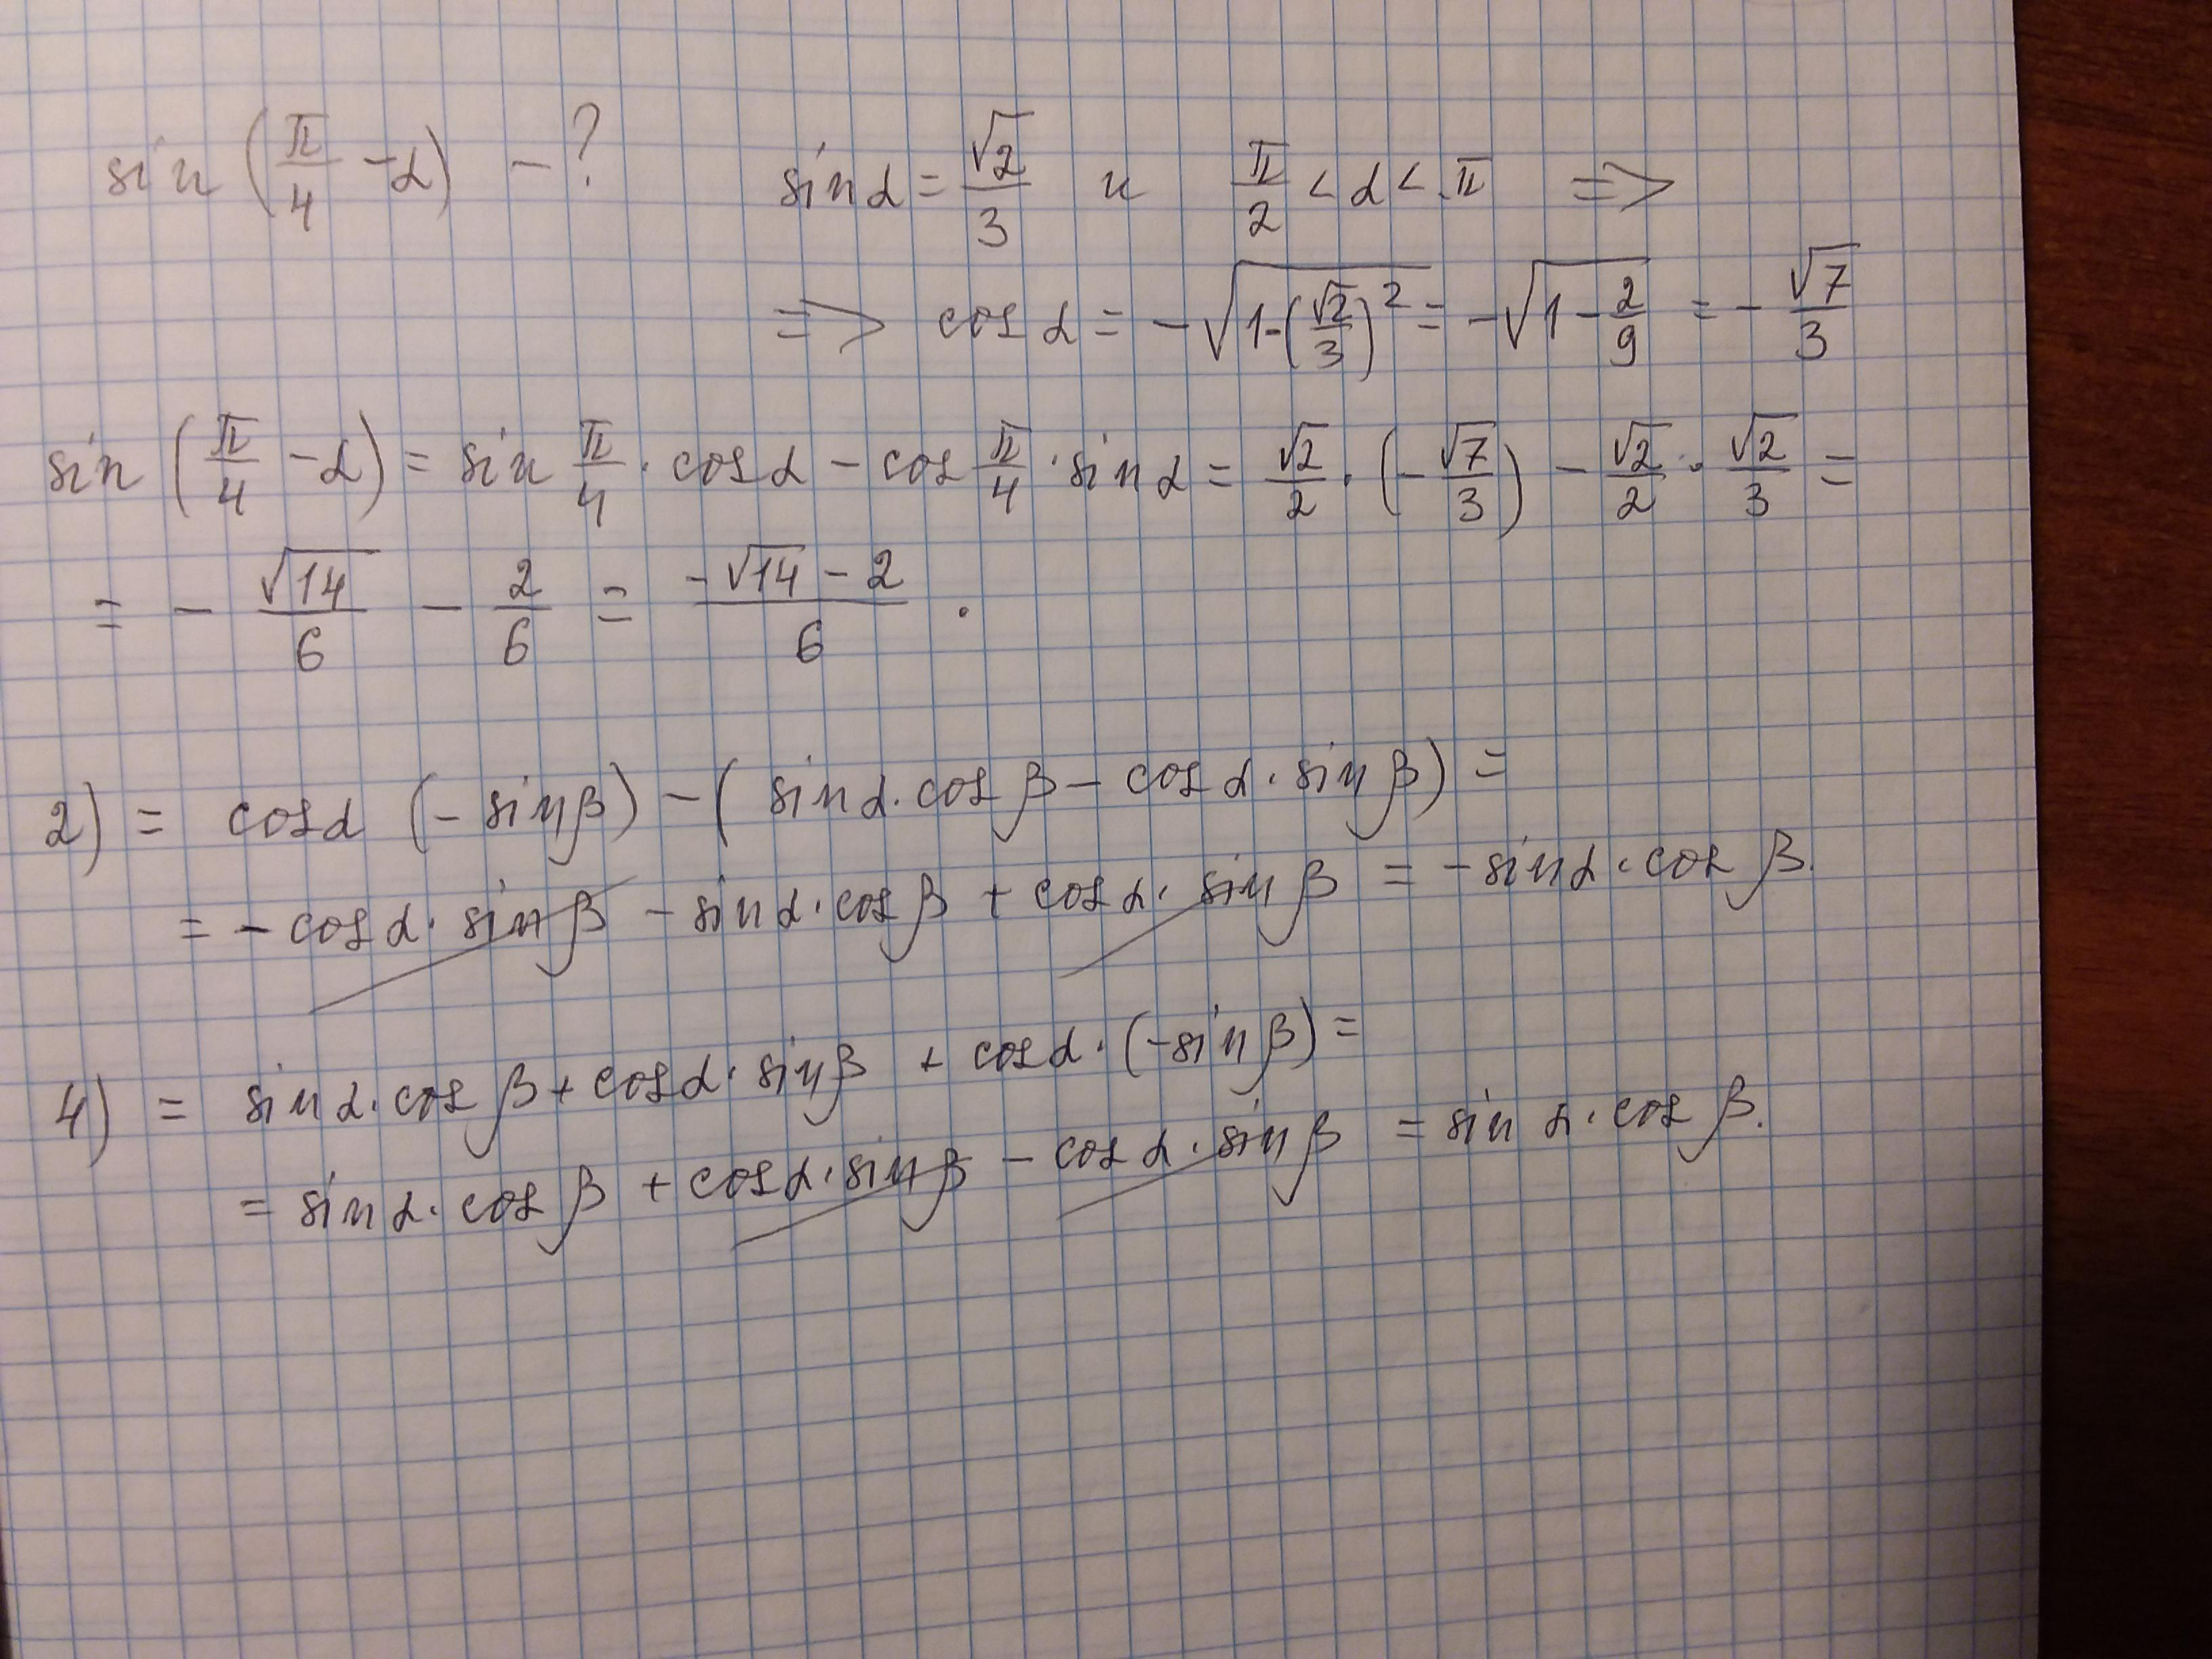 sin (π/4 − α) − ? sin α = √2/3 и π/2 < α < π =>
=> cos α = −√(1−(√2/3)²) = −√(1 − 2/9) = − √7/3
sin (π/4 − α) = sin π/4 · cos α − cos π/4 · sin α = √2/2 · (− √7/3) − √2/2 · √2/3 =
= − √14/6 − 2/6 = (−√14 − 2)/6 .
2) = cos α (− sin β) − ( sin α · cos β − cos α · sin β) =
= − cos α · sin β − sin α · cos β + cos α · sin β = − sin α · cos β.
4) = sin α · cos β + cos α · sin β + cos α · (−sin β) =
= sin α · cos β + cos α · sin β − cos α · sin β = sin α · cos β.